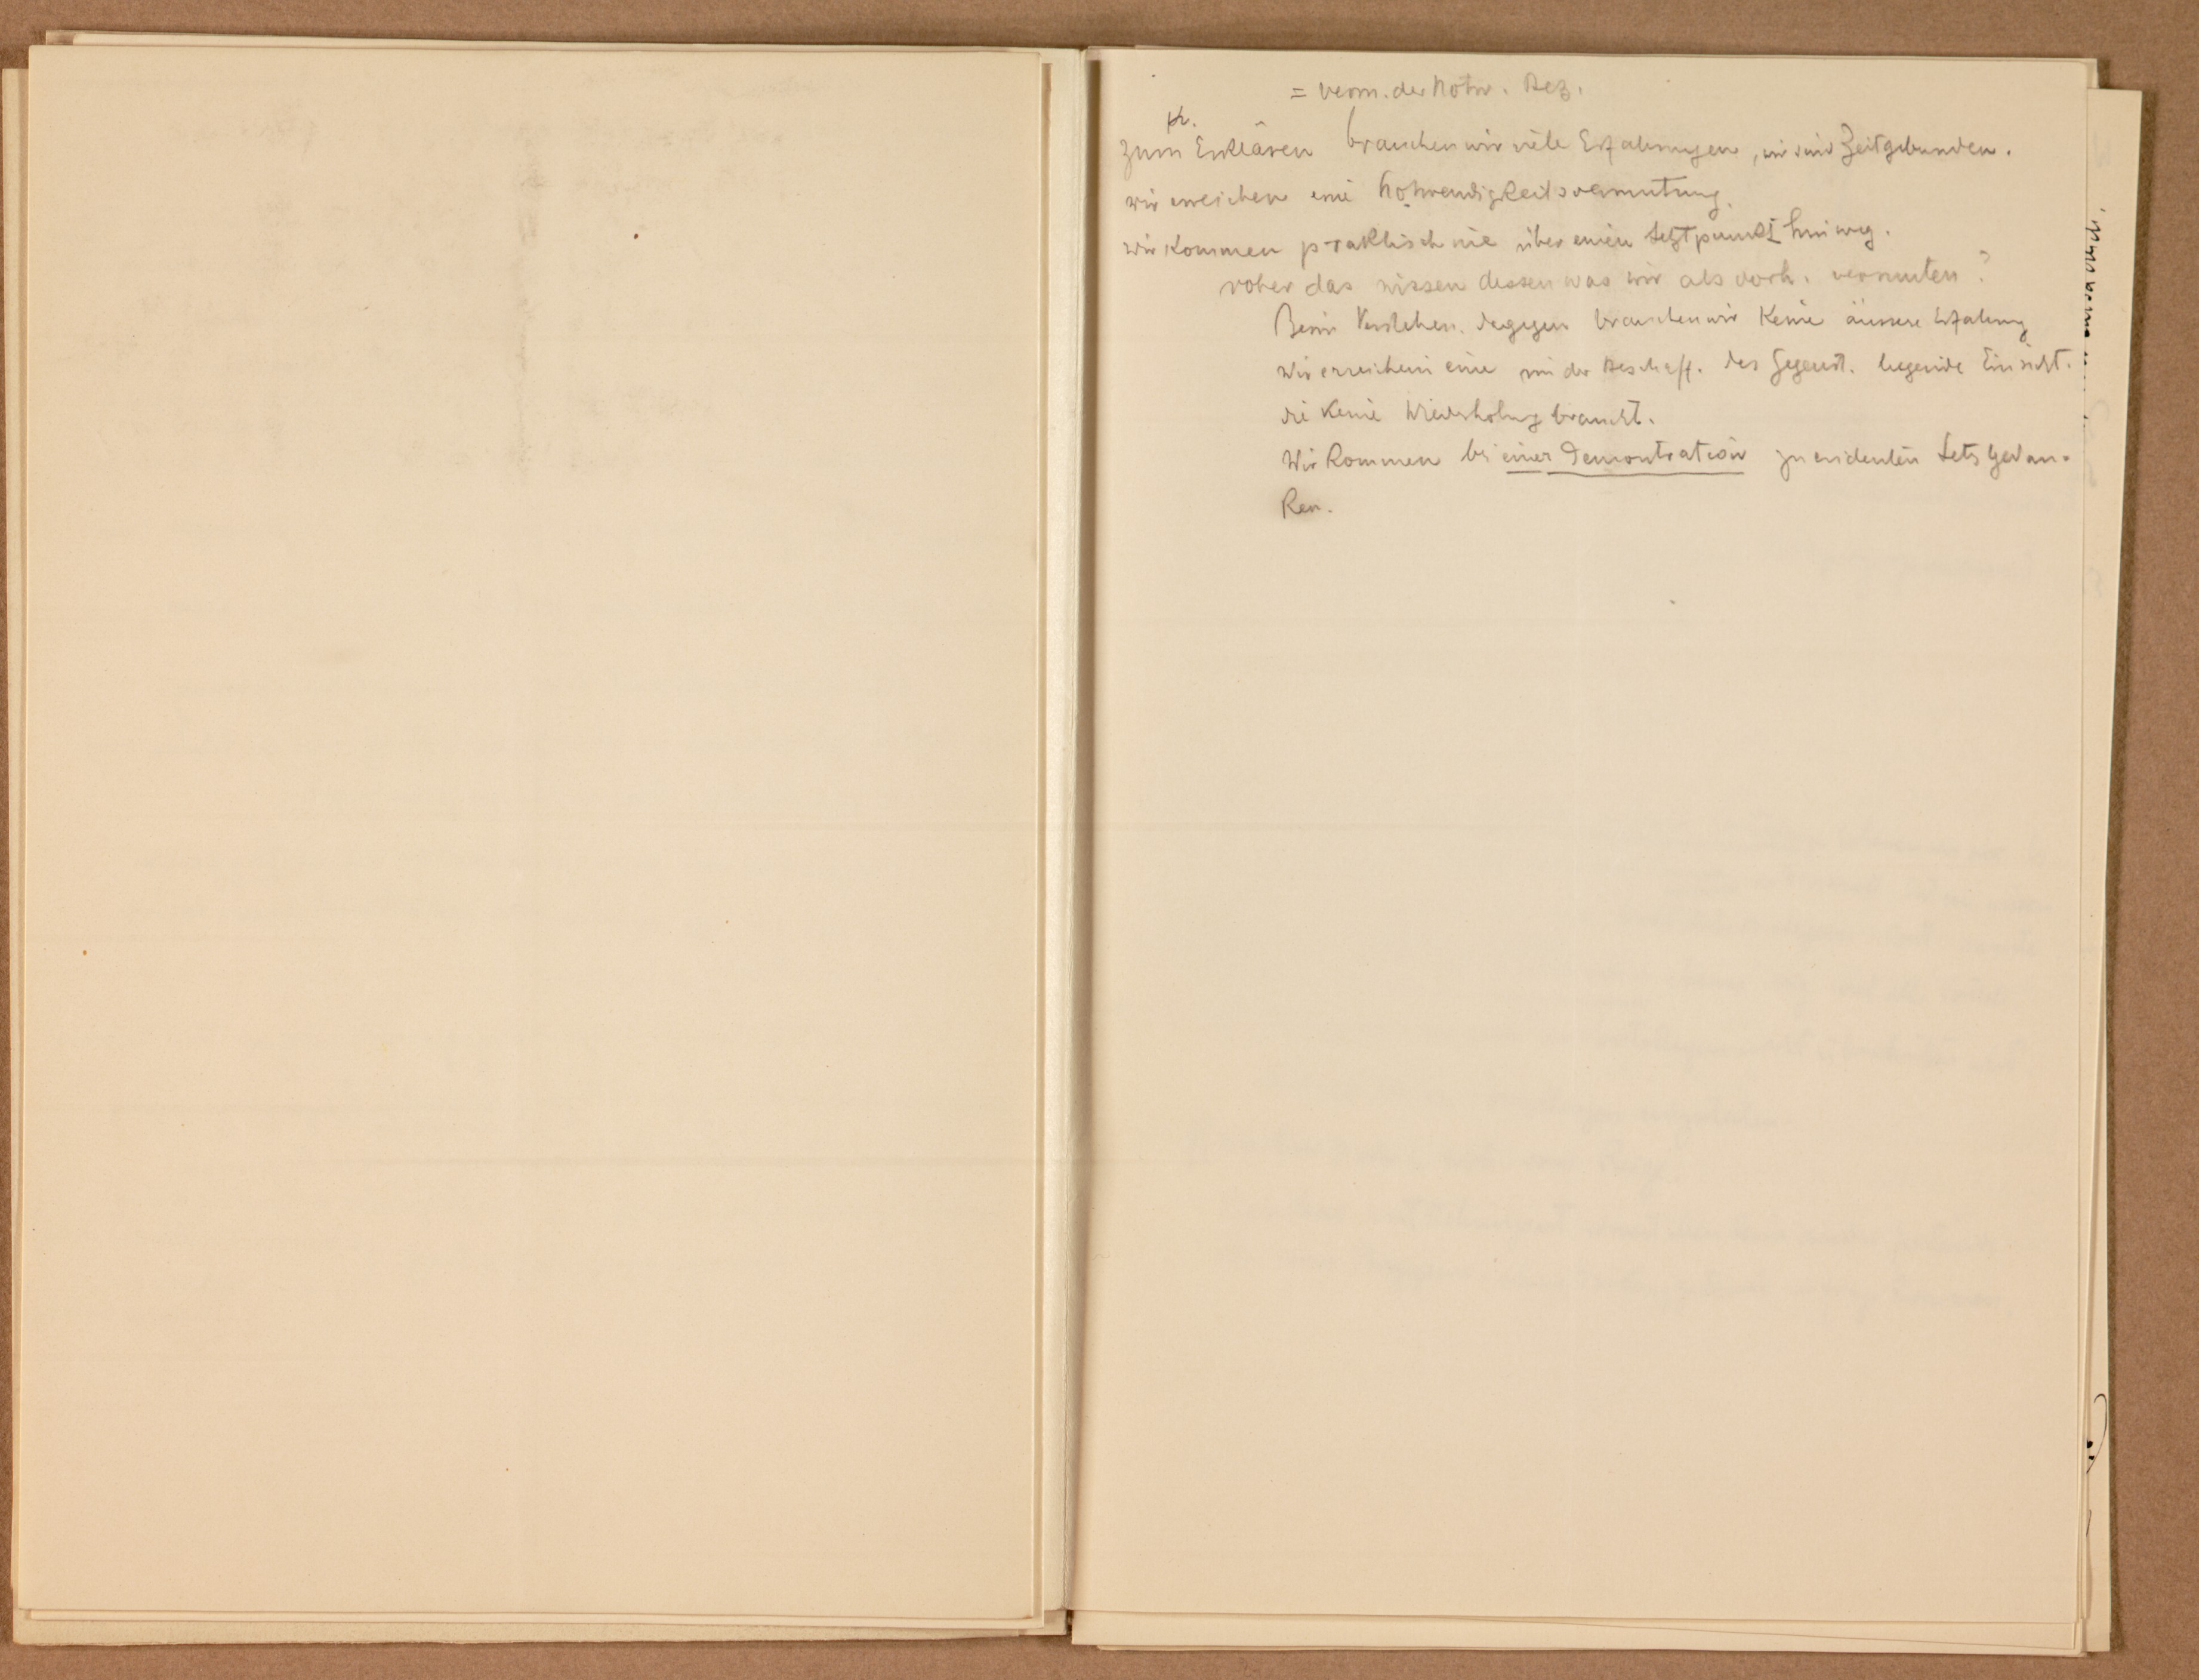 = verm. der Notw. Bez.
pr.
zum Erklären brauchen wir viele Erfahrungen, wir sind Zeitgebunden.
wir erreichen eine Notwendigkeitsvermutung.
wir kommen praktisch nie über einen Letztpunkt hinweg.
woher das wissen dessen was wir als vorh. vermuten?
Beim Verstehen dagegen brauchen wir keine äussere Erfahrung
wir erreichen eine in der Beschaff. des Gegenst. liegende Einsicht.
die keine Wiederholung braucht.
Wir kommen bei einer Demontration zu evidenten Letztgedan-
ken.